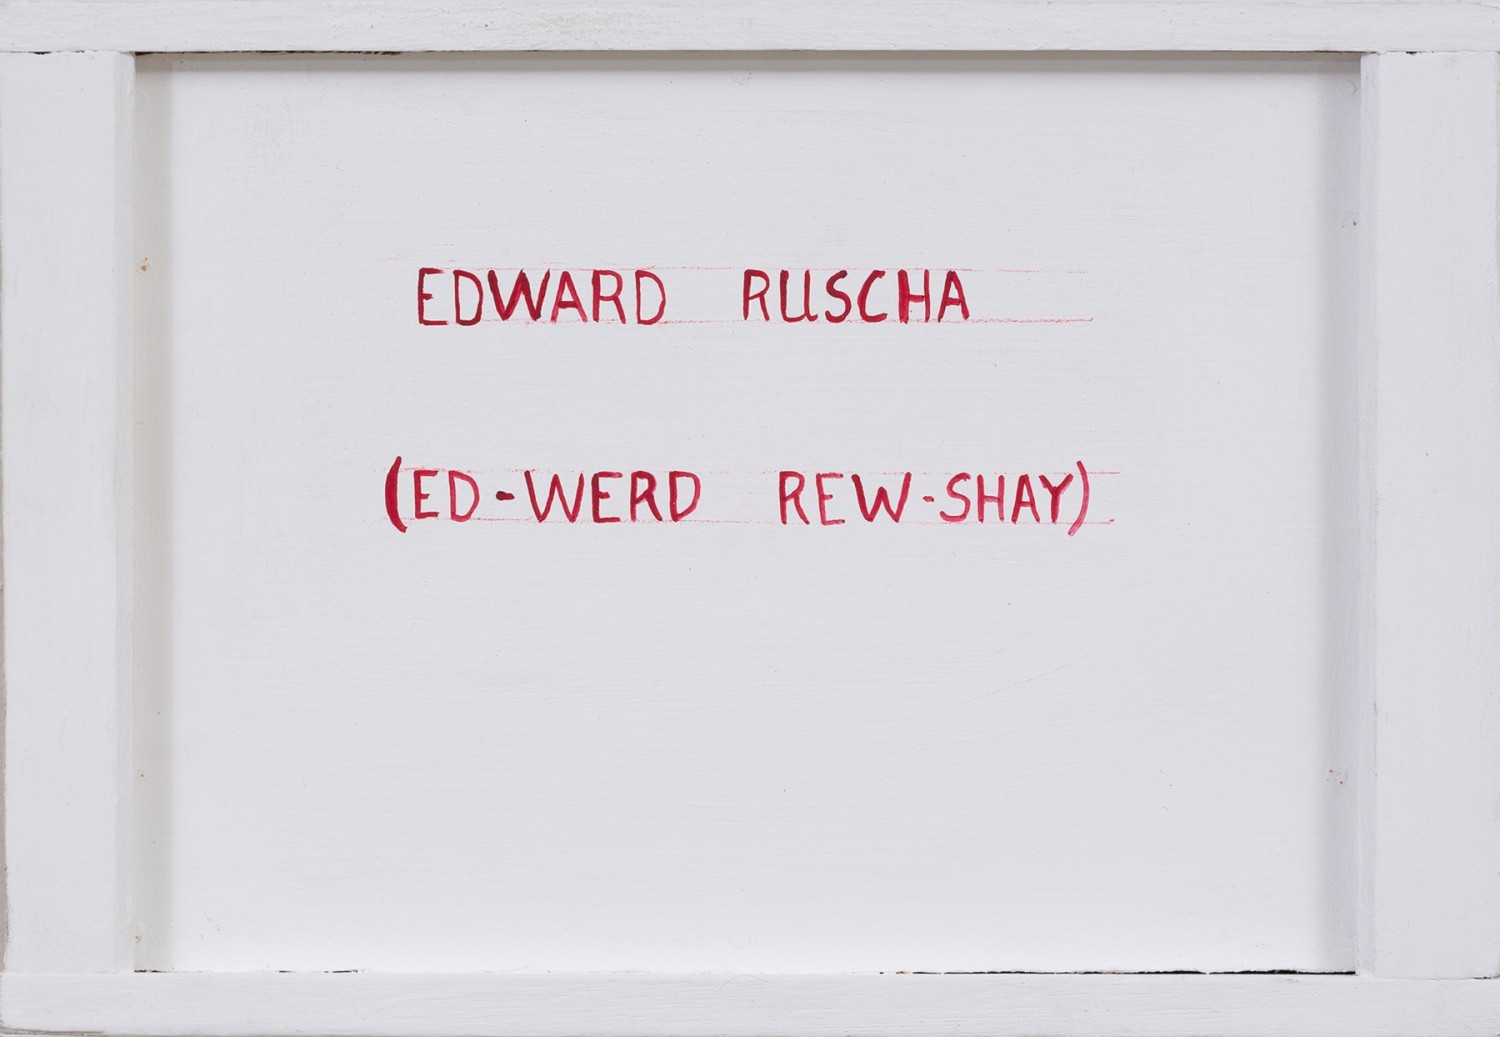 EDWARD RUSCHA
(ED-WERD REW-SHAY)